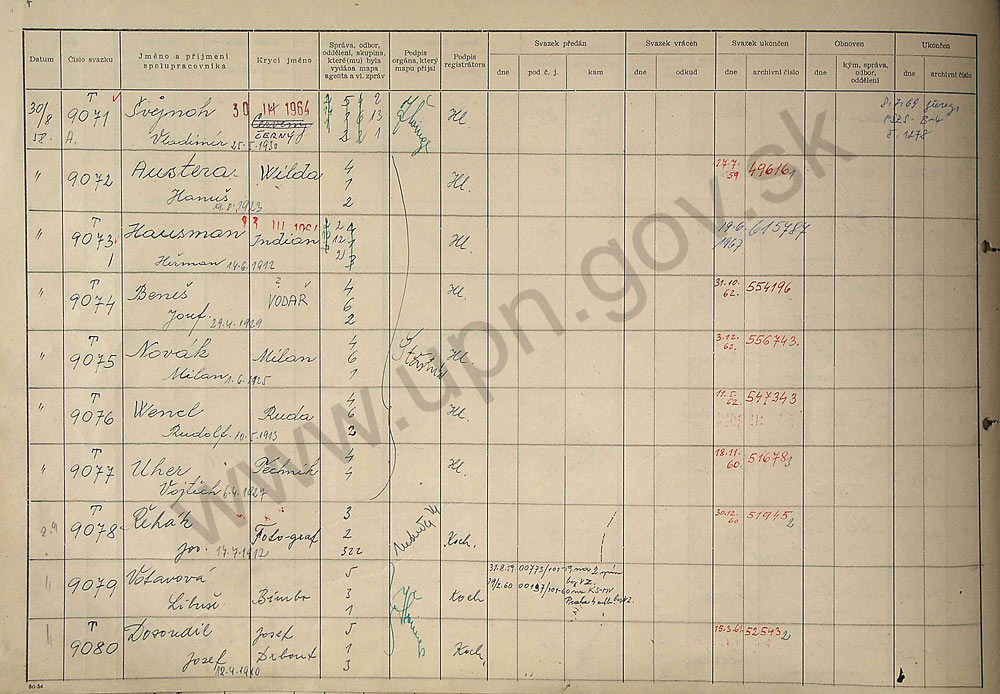 Datum
Číslo svazku
Jméno a příjmení
spolupracovníka
Krycí jméno
Správa, odbor,
oddělení, skupina,
které(mu) byla
vydána mapa
agenta a vl. zpráv
Podpis
orgána, který
mapu přijal
Podpis
registrátora
Svazek předán
dne
pod č. j.
kam
Svazek vrácen
dne
odkud
Svazek ukončen
dne
archivní číslo
Obnoven
dne
kým, správa,
odbor,
oddělení
Ukončen
dne
archivní číslo
30/8
58.
T
9071
A.
Švejnoh
Vladimír 25-5-1930
30 III 1964
ČERNÝ
Hl.
8.7.69
B-4
č. 1278
" 9072
Austera
Hanuš
1923
Wilda
4
1
2
Hl.
17.7.
59
49616
" T
9073
1
Hausman
Heřman 14.6.1912
Indián
Hl.
19.6.
1967
615787
" T
9074
Beneš
Josef 29.4.1929
VODAŘ
4
6
2
Hl.
31.10.
62.
554196
" T
9075
Novák
Milan 1.6.1925
Milan
4
6
1
Hl.
3.12.
62.
556743.
" T
9076
Wencl
Rudolf 10.5.1913
Ruda
4
6
2
Hl.
11.5.
62.
547343
" T
9077
Uher
Vojtěch 6.4.1927
4
4
Hl.
18.11.
60.
51678
2.9 T
9078
Řihák
Jos. 17.7.1912
Foto-graf
3
2
322
Koch.
30.12.
60
51945
" 9079
Votavová
Libuše
Bimbo
5
3
1
Koch
31.8.59. 00773/101-59 na 2
" T
9080
Dosoudil
Josef
12.4.1910
Josef
Drbout
5
1
3
Koch.
15.3.61.
52543
80-54
www.upn.gov.sk